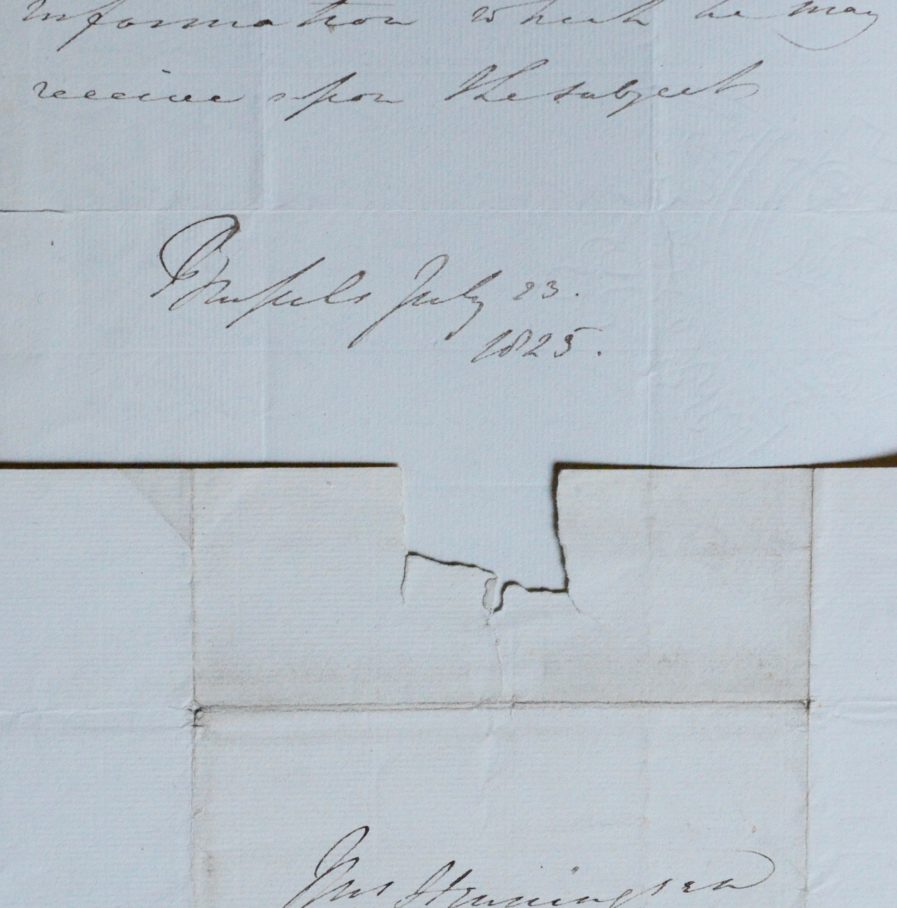 information which he may
receive upon the subject
Brussels July 23.
1825.
Henningsen